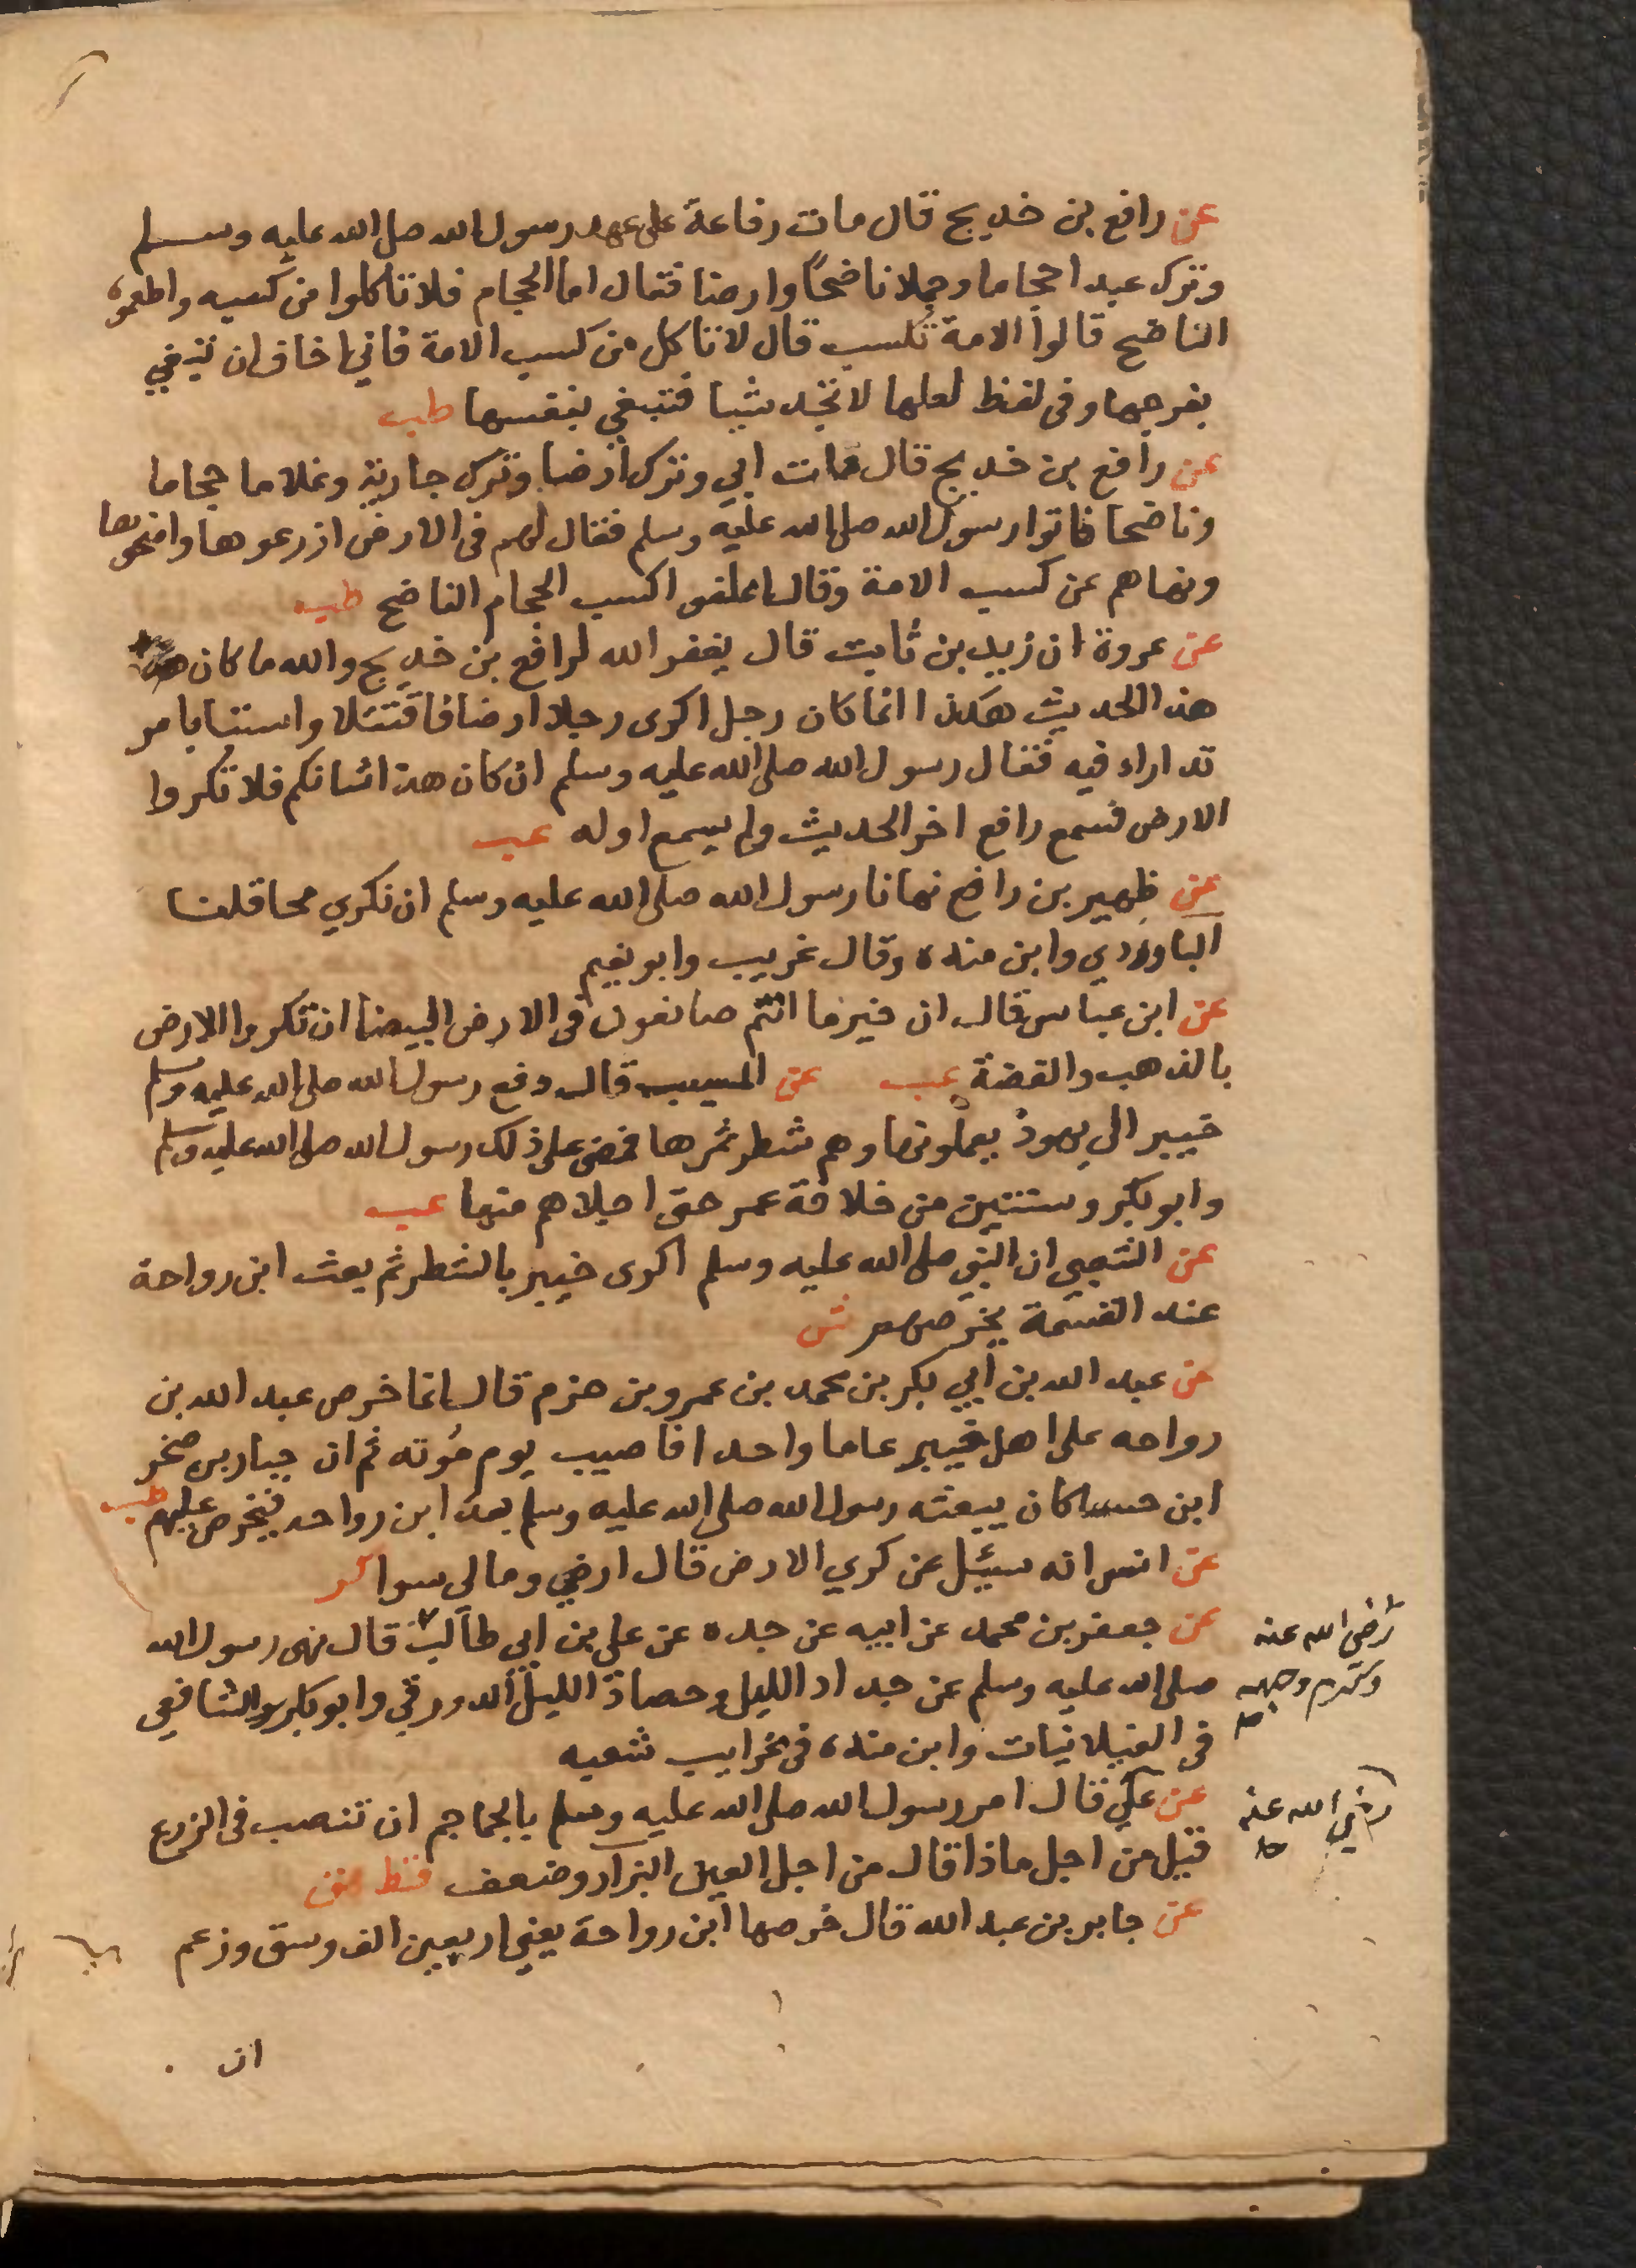 عن رافع بن خديج قال مات رفاعة على عهد رسول الله صلى الله عليه وسلم
وترك عبدا حجاما وجملا ناضحًا وارضا فقال اما الحجام فلا تاكلوا من كسبه واطعموه
الناضح قالوا الامة تكسب قال لا تاكل من كسب الامة فاني اخاف ان تبتغي
بفرجها وفى لفظ لعلها لا تجد شيا فتبغي بنفسها طب
عن رافع بن خديج قال مات ابي وترك ارضا وترك جارية وغلاما حجاما
وناضحا فاتوا رسول الله صلى الله عليه وسلم فقال لهم فى الارض ازرعوها وامنحوها
ونهاهم عن كسب الامة وقال اعلفوا كسب الحجام الناضح طب
عن عروة ان زيد بن ثابت قال يغفر الله لرافع بن خديج والله ما كان
هذا الحديث هكذا انما كان رجل اكرى رجلا ارضا فاقتتلا واستبا بامر
تداراء فيه فقال رسول الله صلى الله عليه وسلم ان كان هذا شانكم فلا تكروا
الارض فسمع رافع اخر الحديث ولم يسمع اوله عب
عن ظهير بن رافع نهانا رسول الله صلى الله عليه وسلم ان نكري محاقلنا
الباوردي وابن منده وقال غريب وابو نعيم
عن ابن عباس قال ان خير ما انتم صانعون فى الارض البيضا ان تكروا الارض
بالذهب والفضة عب عن المسيب قال دفع رسول الله صلى الله عليه وسلم
خيبر الى يهود يعملونها وهم شطر ثمرها فمضى على ذلك رسول الله صلى الله عليه وسلم
وابو بكر وسنتين من خلافة عمر حتى اجلاهم منها عب
عن الشعبي ان النبي صلى الله عليه وسلم اكرى خيبر بالشطر ثم بعث ابن رواحة
عند القسمة يخرصهم ش
عن عبد الله بن ابي بكر بن محمد بن عمرو بن حزم قال انما خرص عبد الله بن
رواحه على اهل خيبر عاما واحدا فاصيب يوم مُوته ثم ان جبار بن صخر
ابن حنسا كان يبعثه رسول الله صلى الله عليه وسلم بعد ابن رواحه فيخرص عليهم طب
عن انس انه سيئل عن كري الارض قال ارضي ومالى سوا كر
عن جعفر بن محمد عن ابيه عن جده عن على بن ابي طالب قال نهى رسول الله
رضى الله عنه
وكرم وجهه
صلى الله عليه وسلم عن جداد الليل وحصاد الليل الدورقي وابو بكر الشافعي
فى الغيلانيات وابن منده فى غرايب شعبه
عن علي قال امر رسول الله صلى الله عليه وسلم بالجماجم ان تنصب فى الزرع
رضي الله عنه
قيل من اجل ماذا قال من اجل العين البزار وضعف قط هق
عن جابر بن عبد الله قال خرصها ابن رواحة يعني اربعين الف وسق وزعم
ان